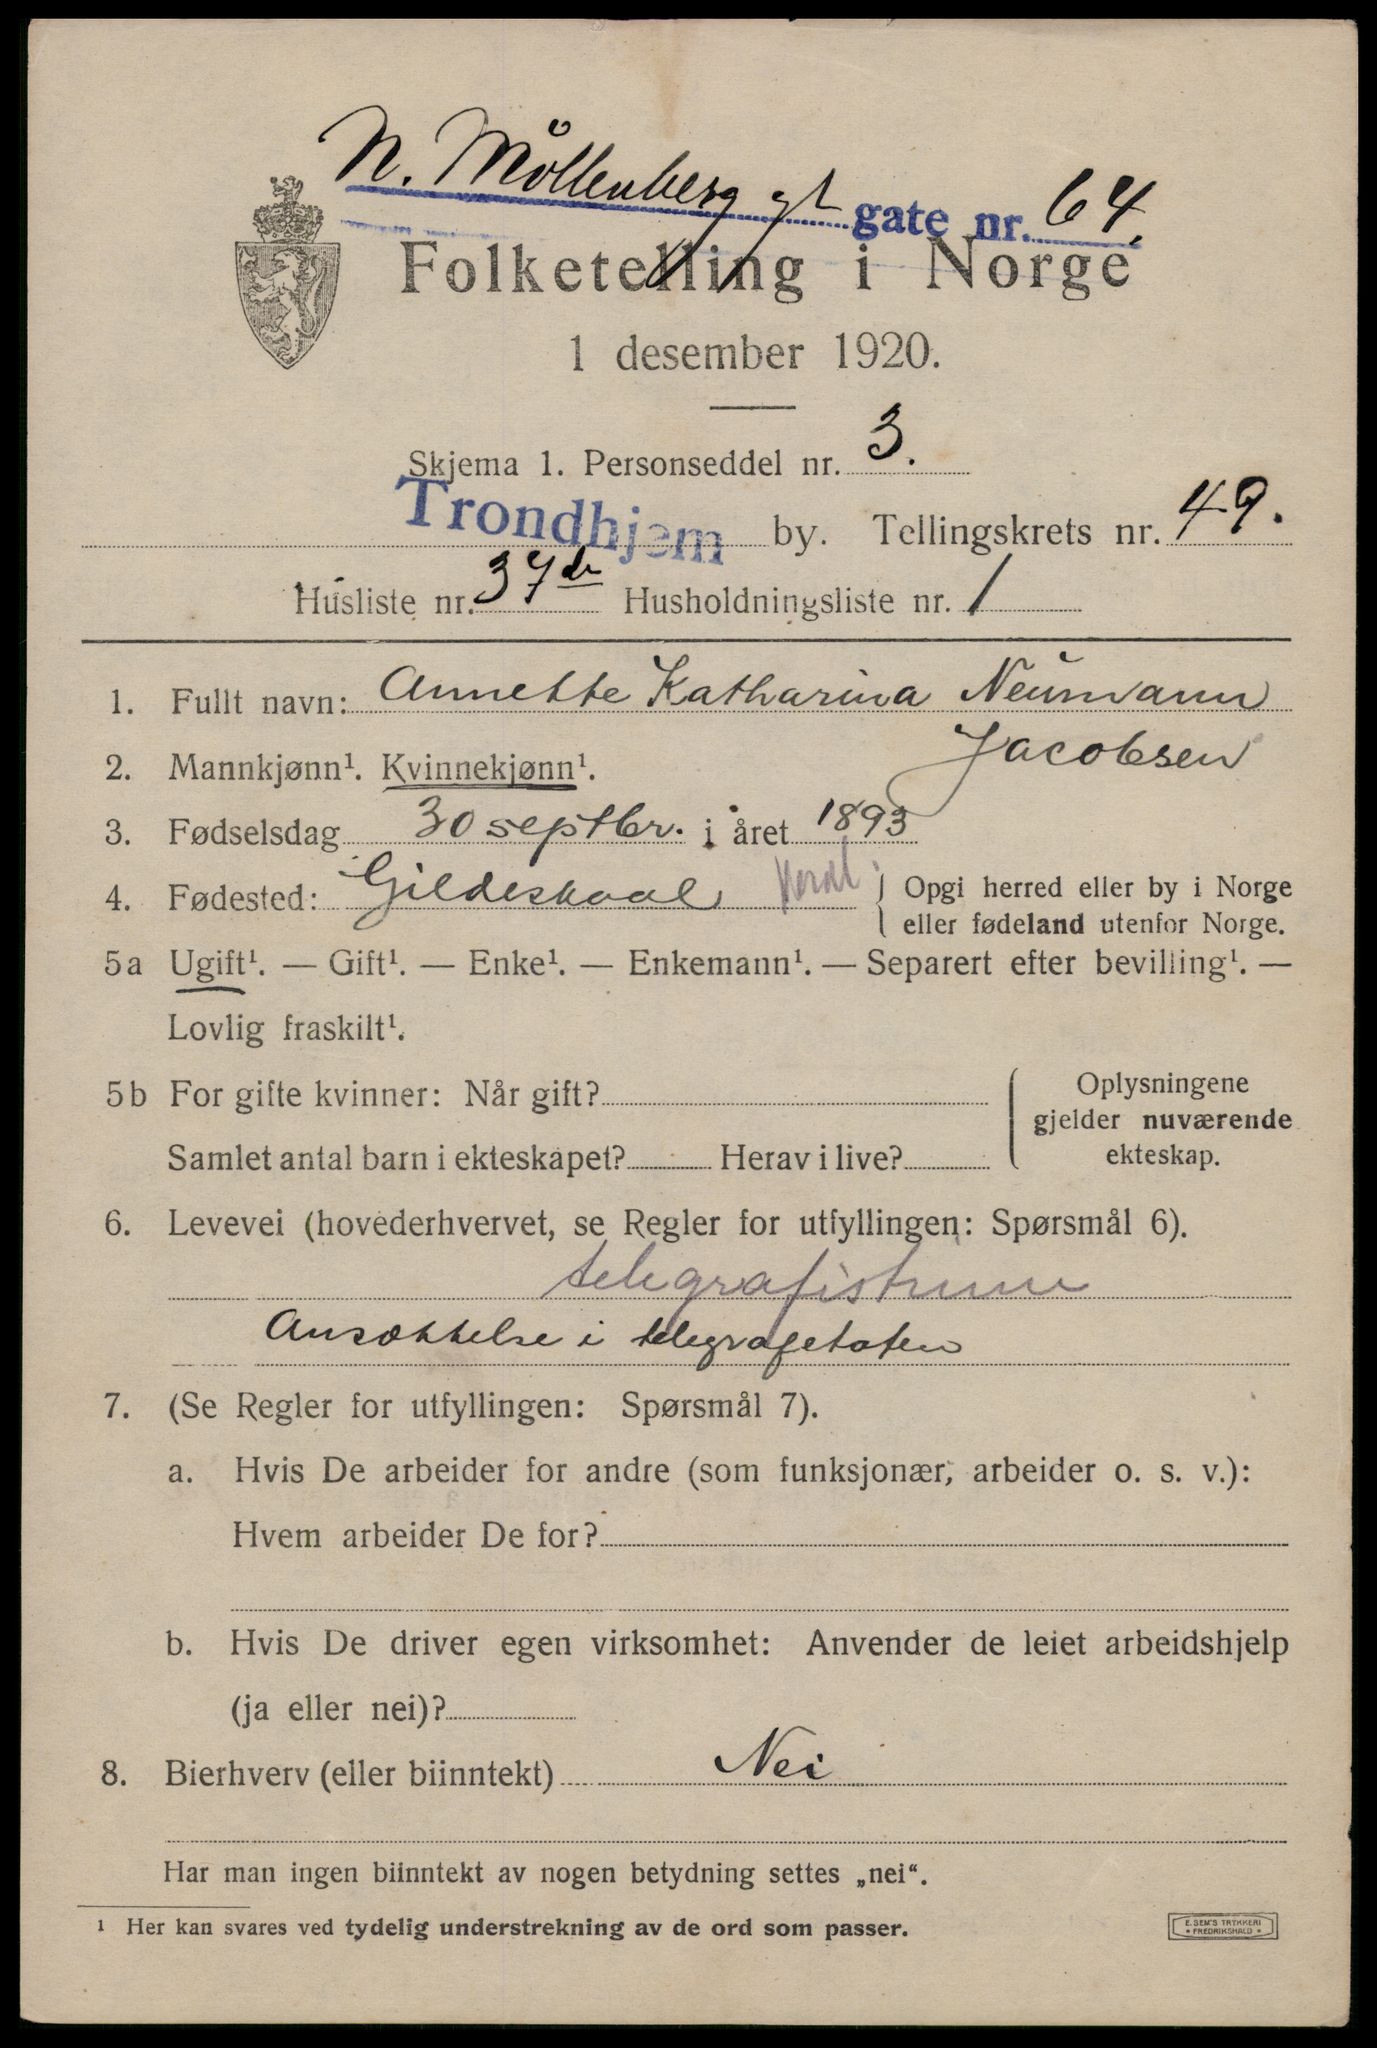 N. Möllenberg gt gate nr. 64.
Folketelling i Norge
1 desember 1920.
Skjema 1. Personseddel nr. 3.
Trondhjem by. Tellingskrets nr. 49.
Husliste nr. 37 Husholdningsliste nr. 1
1. Fullt navn: Annette Katharina Neumann
Jacobsen
2. Mannkjønn¹. Kvinnekjønn¹.
3. Fødselsdag 30 septbr. i året 1893
4. Fødested: Gildeskaal Nordl. Opgi herred eller by i Norge
eller fødeland utenfor Norge.
5a Ugift¹. — Gift¹. — Enke¹. — Enkemann¹. — Separert efter bevilling¹. —
Lovlig fraskilt¹.
5b For gifte kvinner: Når gift? Oplysningene
gjelder nuværende
Samlet antal barn i ekteskapet? Herav i live? ekteskap.
6. Levevei (hovederhvervet, se Regler for utfyllingen: Spørsmål 6).
telegrafistinne
Ansættelse i telegrafetaten
7. (Se Regler for utfyllingen: Spørsmål 7).
a. Hvis De arbeider for andre (som funksjonær, arbeider o. s. v.):
Hvem arbeider De for?
b. Hvis De driver egen virksomhet: Anvender de leiet arbeidshjelp
(ja eller nei)?
8. Bierhverv (eller biinntekt) Nei
Har man ingen biinntekt av nogen betydning settes „nei“.
¹ Her kan svares ved tydelig understrekning av de ord som passer.
E. SEM'S TRYKKERI
* FREDRIKSHALD *